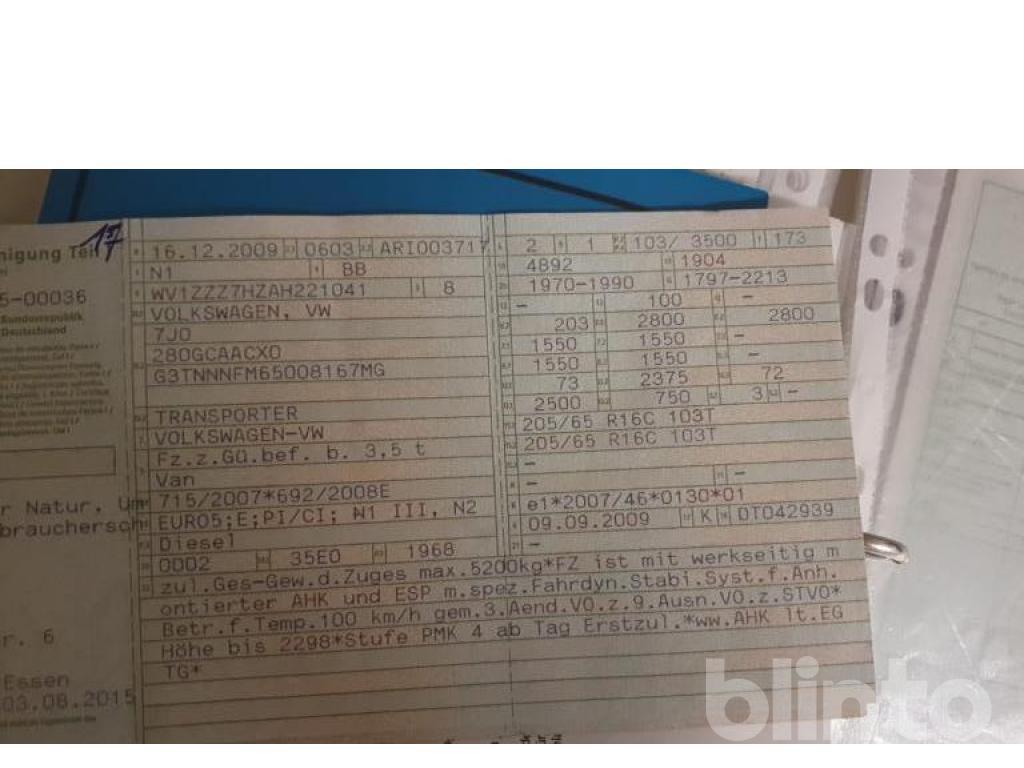 17
nigung Teil
5-00036
Bundesrepublik
Deutschland
16.12.2009 0603 ARI003717
N1 BB
WV1ZZZ7HZAH221041 8
VOLKSWAGEN, VW
7J0
280GCAACX0
G3TNNNFM65008167MG
TRANSPORTER
VOLKSWAGEN-VW
Fz.z.Gü.bef. b. 3,5 t
Van
715/2007*692/2008E
EURO5;E;PI/CI; N1 III, N2
Diesel
0002 35E0 1968
2 1 103/ 3500 173
4892 1904
1970-1990 1797-2213
- 100 -
203 2800 2800
1550 1550 -
1550 1550 -
73 2375 72
2500 750 3 -
205/65 R16C 103T
205/65 R16C 103T
-
- -
e1*2007/46*0130*01
09.09.2009 K DT042939
-
zul.Ges-Gew.d.Zuges max.5200kg*FZ ist mit werkseitig m
ontierter AHK und ESP m.spez.Fahrdyn.Stabi.Syst.f.Anh.
Betr.f.Temp.100 km/h gem.3.Aend.VO.z.9.Ausn.VO.z.STVO*
Höhe bis 2298*Stufe PMK 4 ab Tag Erstzul.*ww.AHK lt.EG
TG*
r Natur, Um
brauchersch
r. 6
Essen
03.08.2015
blinto